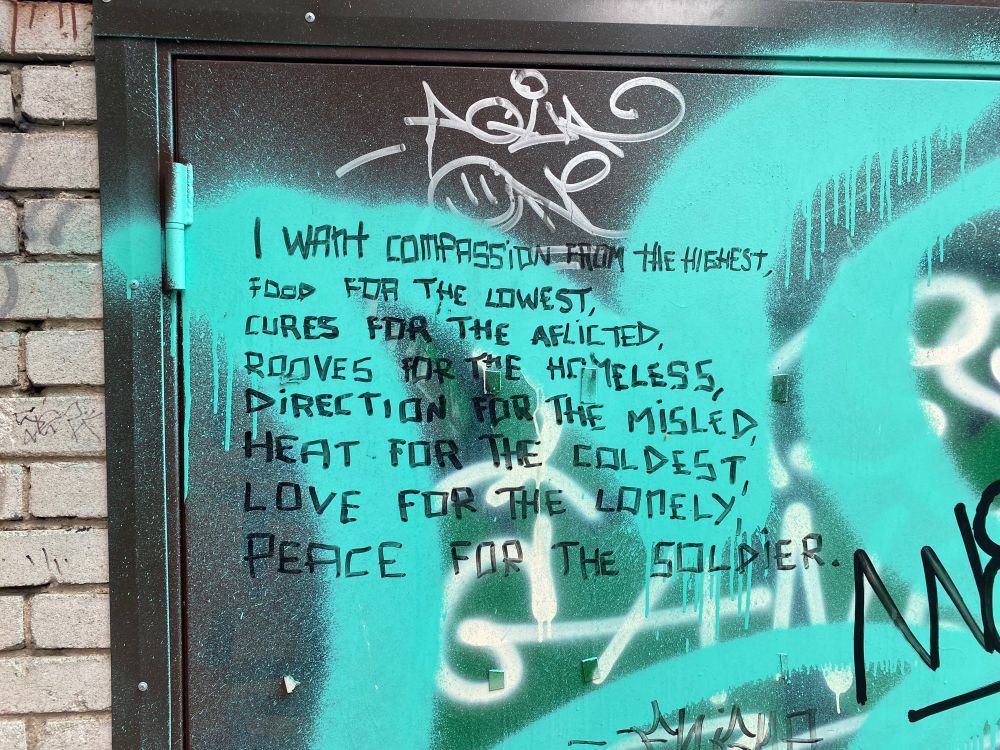 I WANT COMPASSION FROM THE HIGHEST,
FOOD FOR THE LOWEST,
CURES FOR THE AFLICTED,
ROOVES FOR THE HOMELESS,
DIRECTION FOR THE MISLED,
HEAT FOR THE COLDEST,
LOVE FOR THE LONELY,
PEACE FOR THE SOLDIER.